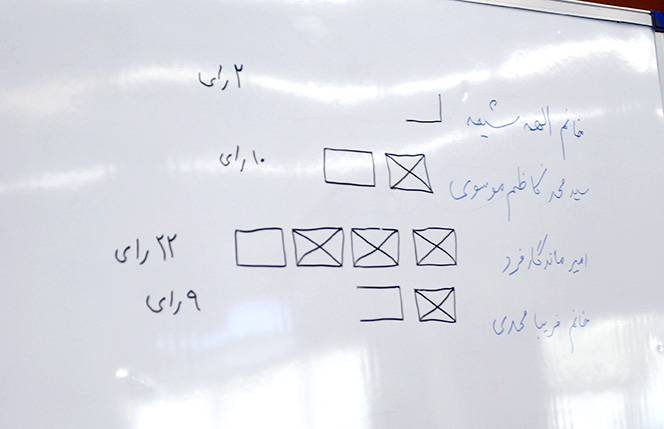 خانم الهه شیعه ۲ رای
سید محمد کاظم موسوی ۱۰ رای
امیر ماندگار فرد ۲۲ رای
خانم فریبا محمدی ۹ رای